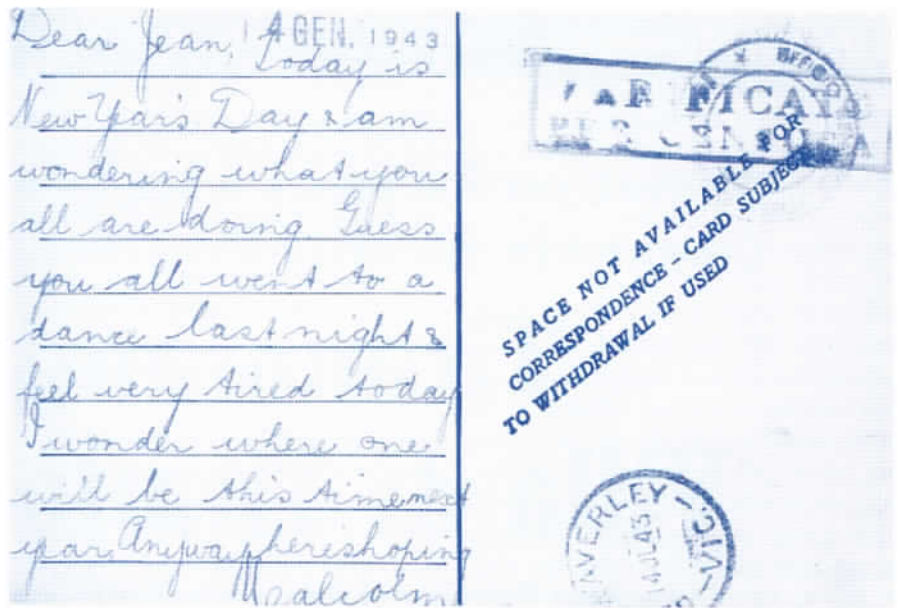 Dear Jean, 14 GEN. 1943
Today is
New Year's Day & am
wondering what you
all are doing. Guess
you all went to a
dance last night &
feel very tired today
I wonder where one
will be this time next
year. Anyway heres hoping
Malcolm
SPACE NOT AVAILABLE FOR
CORRESPONDENCE – CARD SUBJECT
TO WITHDRAWAL IF USED
WAVERLEY – VIC.
4 JL 43